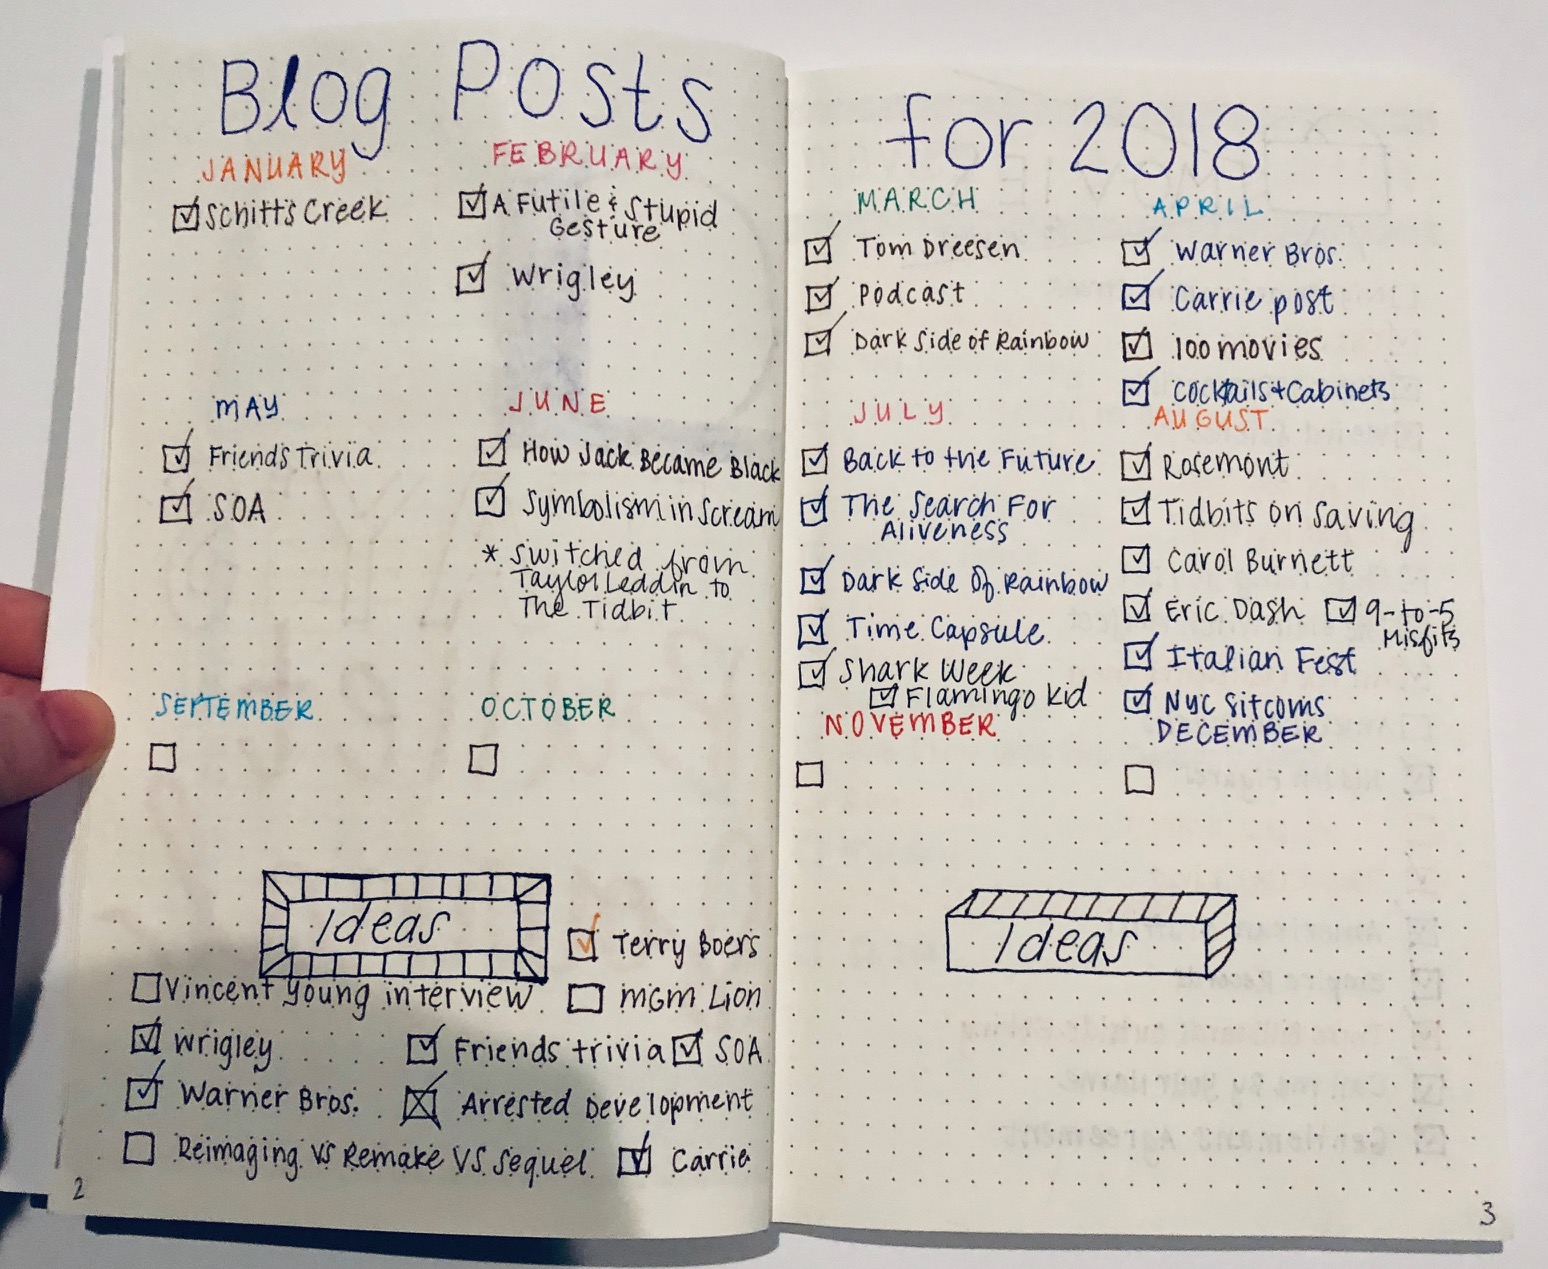 Blog Posts
JANUARY
☑ Schitt's Creek
FEBRUARY
☑ A Futile & Stupid
Gesture
☑ Wrigley
MAY
☑ Friends Trivia
☑ SOA
JUNE
☑ How Jack Became Black
☑ Symbolism in Scream
* Switched from
Taylor Leddin to
The Tidbit.
SEPTEMBER
☐
OCTOBER
☐
Ideas
☑ Terry Boers
☐ Vincent Young interview
☐ MGM Lion
☑ Wrigley
☑ Friends trivia
☑ SOA
☑ Warner Bros.
☒ Arrested Development
☐ Reimaging vs Remake VS. Sequel
☑ Carrie
2
for 2018
MARCH
☑ Tom Dreesen
☑ Podcast
☑ Dark Side of Rainbow
APRIL
☑ Warner Bros.
☑ Carrie post
☑ 100 movies
☑ Cocktails + Cabinets
JULY
☑ Back to the Future
☑ The Search For
Aliveness
☑ Dark Side Of Rainbow
☑ Time Capsule
☑ Shark Week
☑ Flamingo Kid
AUGUST
☑ Rosemont
☑ Tidbits on Saving
☑ Carol Burnett
☑ Eric Dash ☑ 9-to-5
Misfits
☑ Italian Fest
☑ NYC Sitcoms
NOVEMBER
☐
DECEMBER
☐
Ideas
3